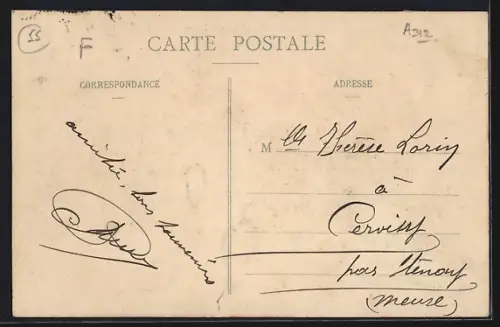 55
F
A312
CARTE POSTALE
CORRESPONDANCE
ADRESSE
amitié, bons souvenirs
Mlle Thérèse Lorin
à
Cervisy
par Stenay
(Meuse)